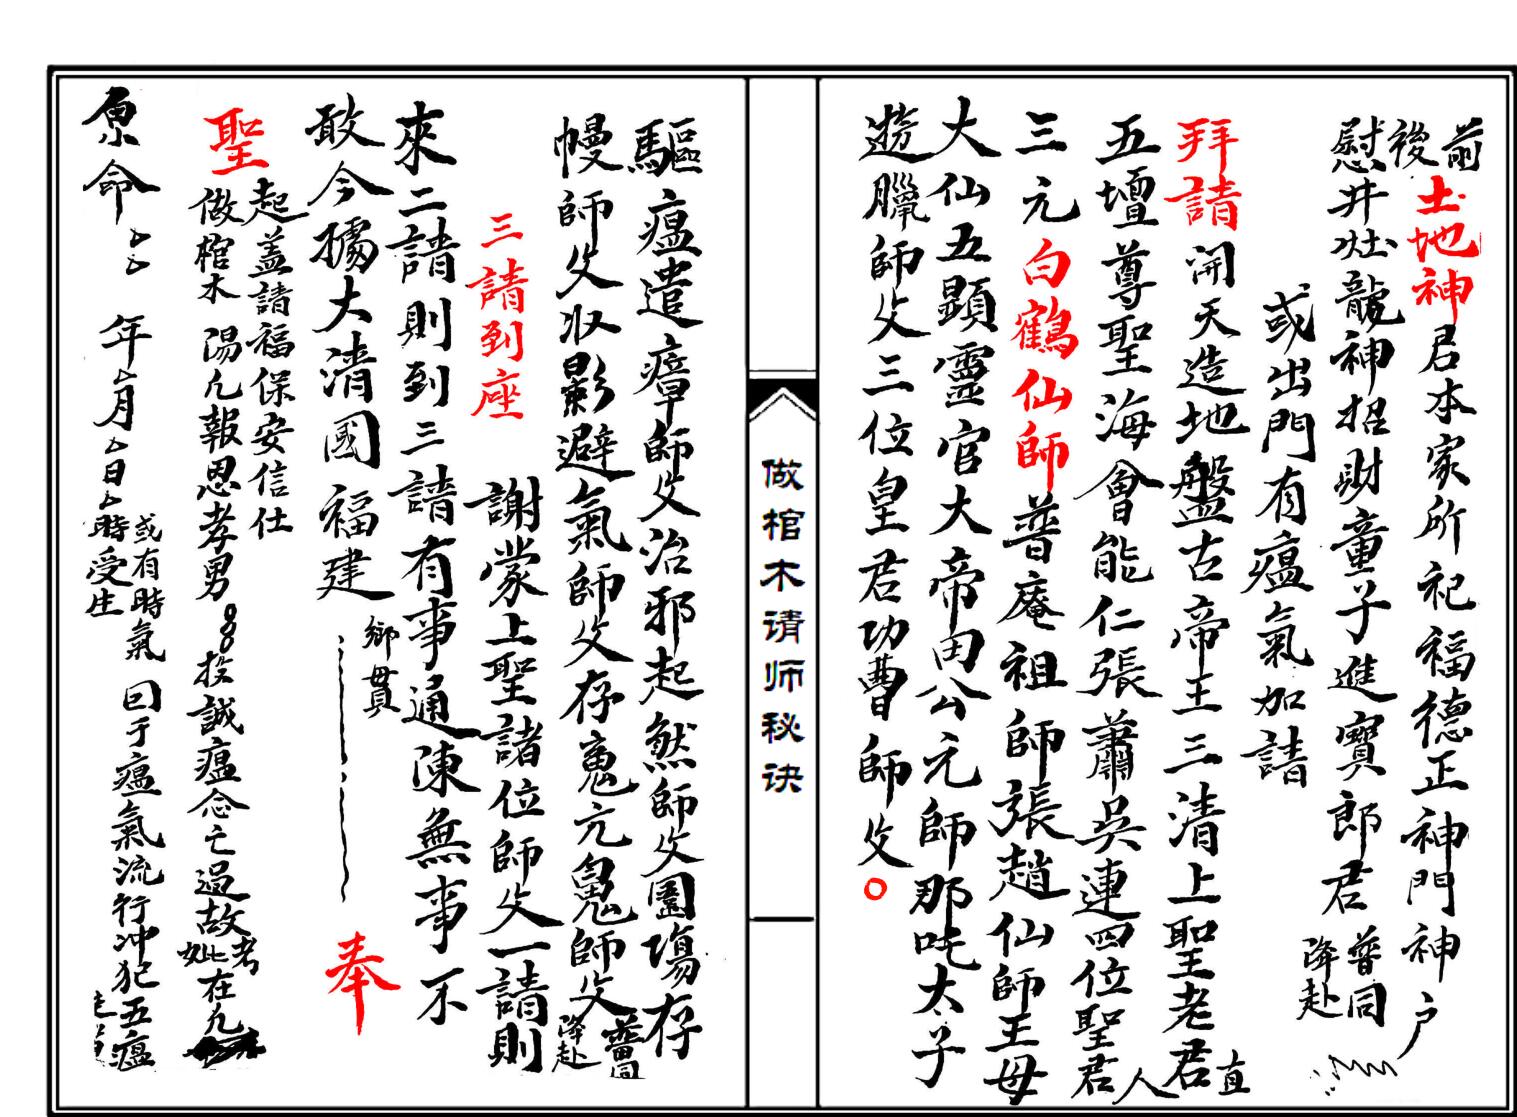 前
後
土地神君本家所祀福德正神門神户
慰井灶龍神招財童子進寶郎君 普同
降赴
或出門有瘟氣加請
拜請開天造地盤古帝王三清上聖老君 直
五壇尊聖海會能仁張蕭吳連四位聖君 人
三元白鶴仙師普庵祖師張趙仙師王母
大仙五顯靈官大帝田公元師那吒太子
遊臘師父三位皇君功曹師父○
做棺木请师秘诀
驅瘟遣瘴師父治邪起煞師父圍場存
幔師父收影避氣師父存魂亢鬼師父 普同
降赴
三請到座 謝蒙上聖諸位師父一請則
來二請則到三請有事通陳無事不
敢今據大清國福建 鄉貫 奉
聖 起蓋請福保安信仕
做棺木 陽凢報恩孝男 投誠瘟念亡過故 考
妣 在凢
原命 年 月 日 時受生
或有時氣 囙于瘟氣流行冲犯五瘟